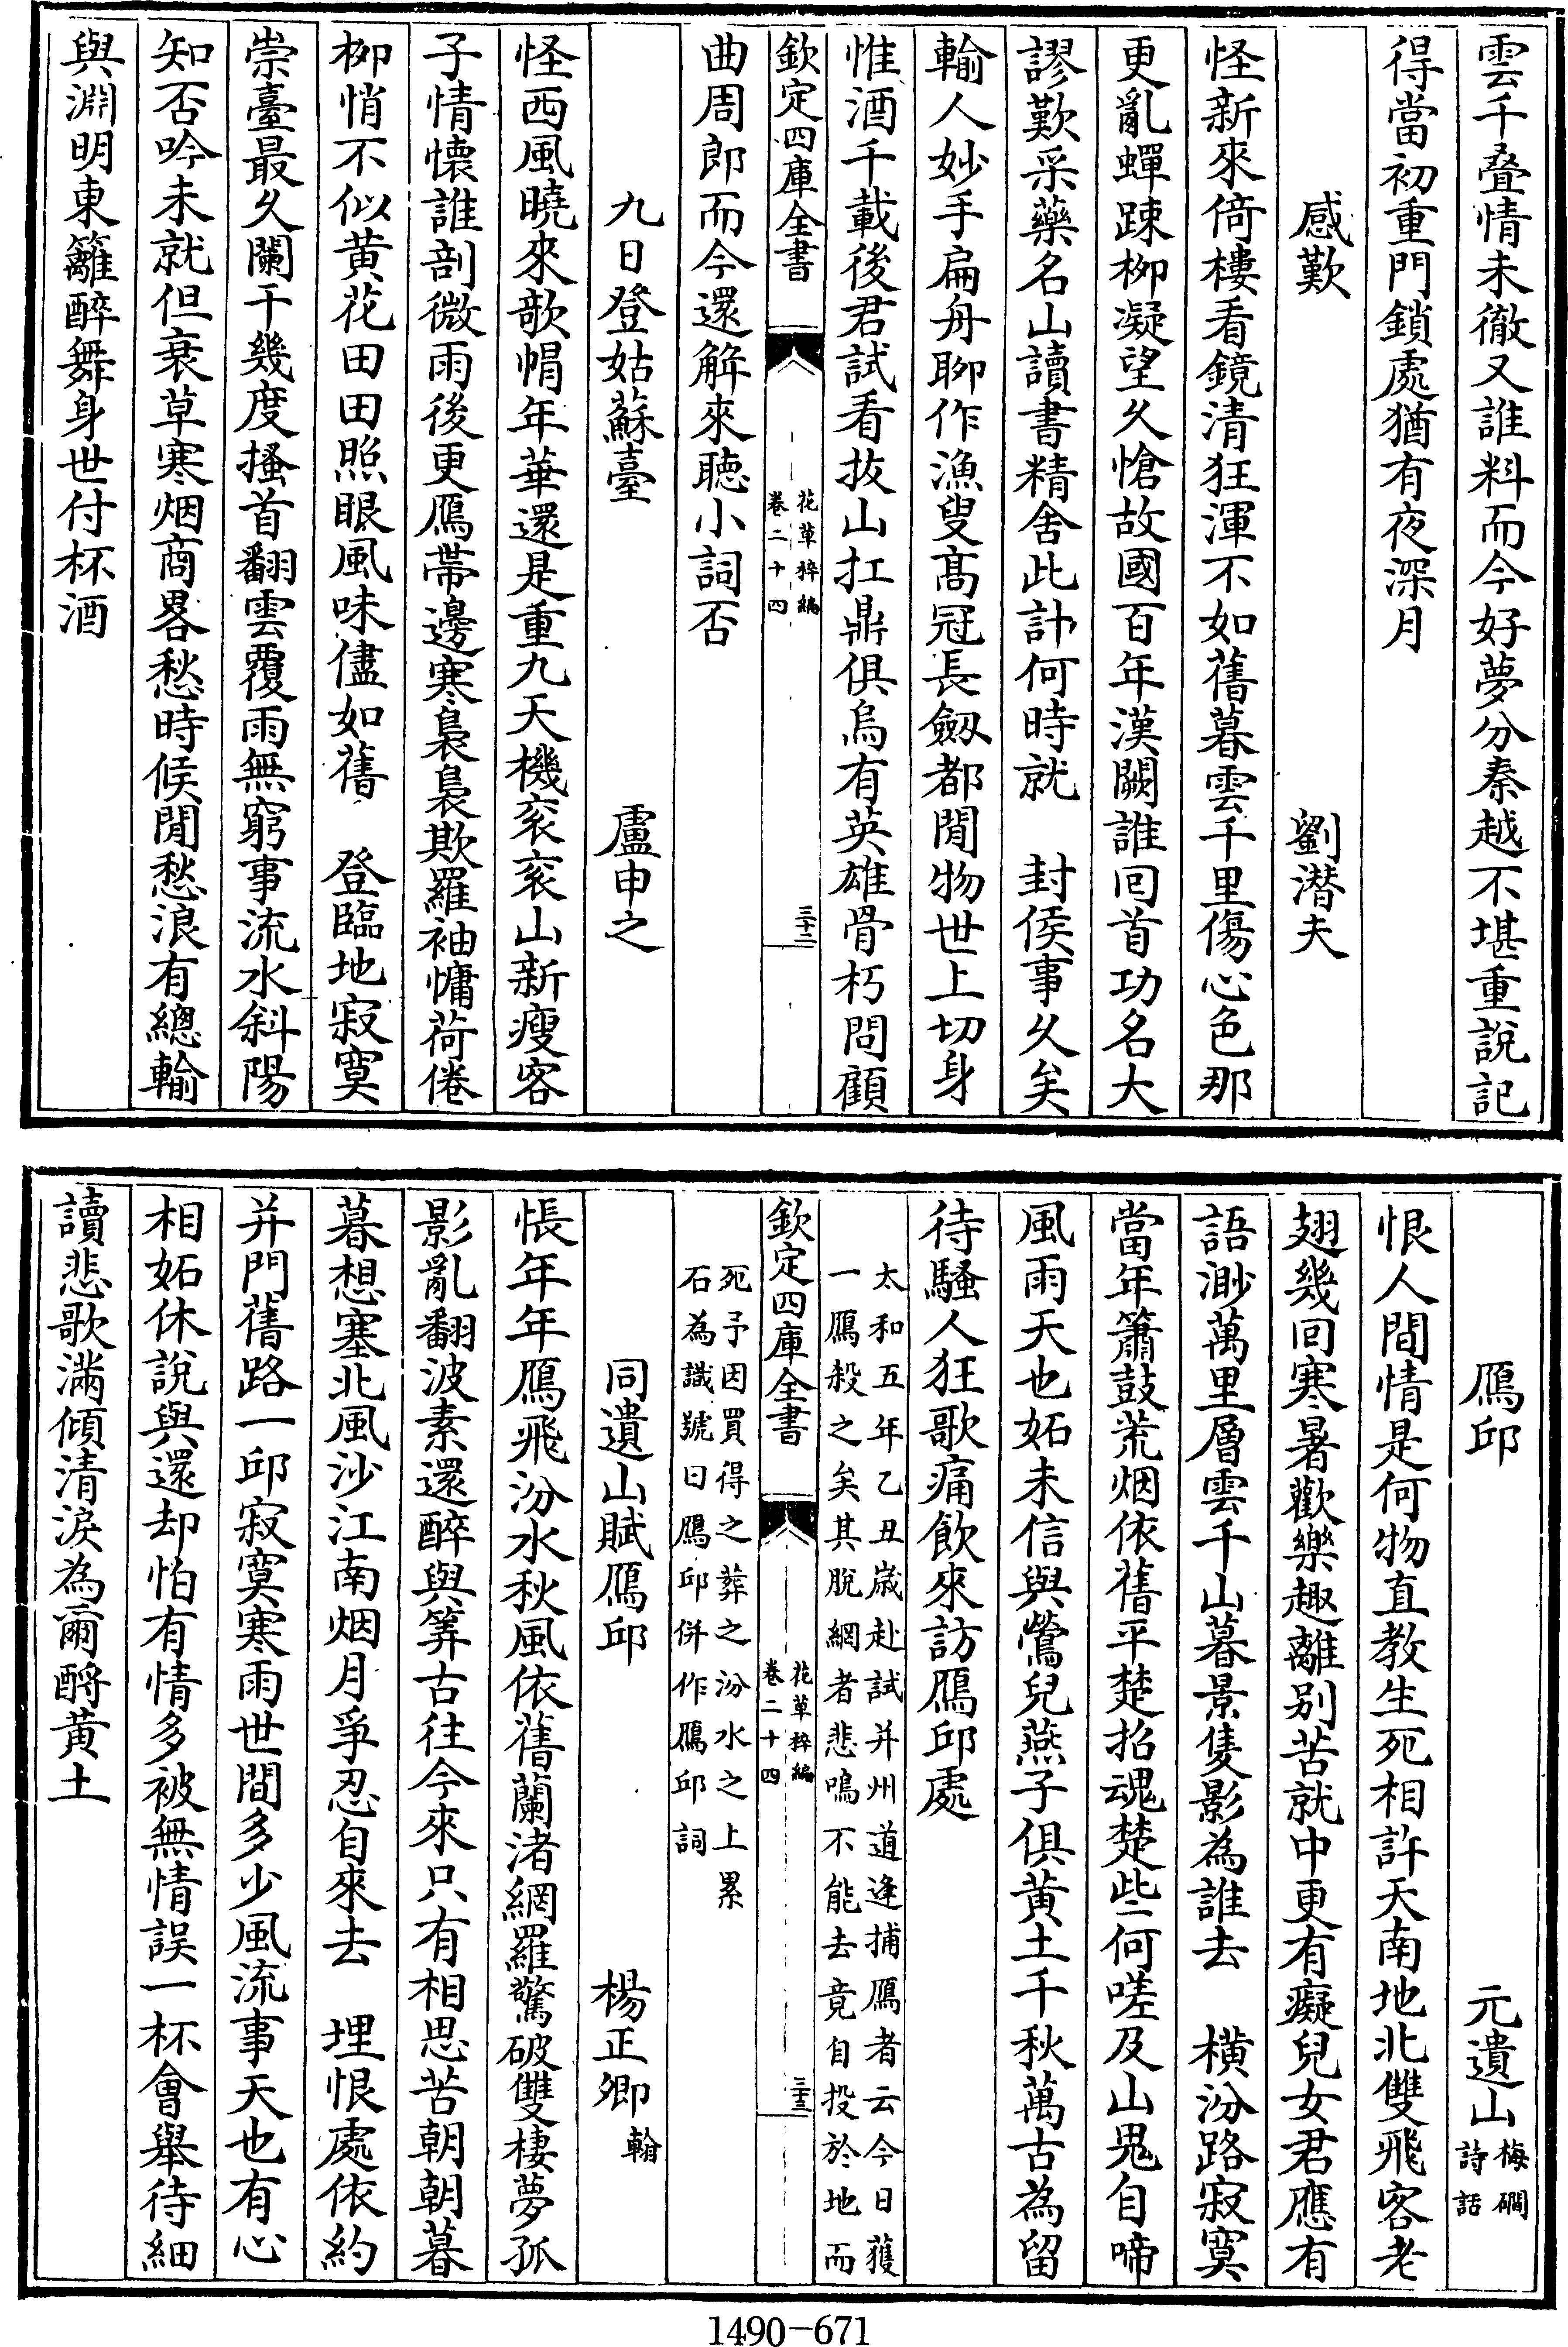 雲千叠情未徹又誰料而今好夢分秦越不堪重說記
得當初重門鎖處猶有夜深月
感歎　劉潜夫
怪新來倚樓看鏡清狂渾不如舊暮雲千里傷心色那
更亂蟬踈栁凝望久愴故國百年漢闕誰回首功名大
謬歎采藥名山讀書精舍此計何時就　封侯事久矣
輸人妙手扁舟聊作漁叟髙冠長劒都閒物世上切身
惟酒千載後君試看拔山扛鼎俱烏有英雄骨朽問顧
欽定四庫全書　花草稡編卷二十四　三十二
曲周郎而今還解來聽小詞否
九日登姑蘇臺　盧申之
怪西風曉來欹帽年華還是重九天機衮衮山新瘦客
子情懐誰剖微雨後更鴈帶邊寒裊裊欺羅袖慵荷倦
栁悄不似黄花田田照眼風味儘如舊　登臨地寂寞
崇臺最久闌干幾度搔首翻雲覆雨無窮事流水斜陽
知否吟未就但衰草寒烟商畧愁時候閒愁浪有總輸
與淵明東籬醉舞身世付杯酒
鴈邱　元遺山梅磵詩話
恨人間情是何物直教生死相許天南地北雙飛客老
翅幾回寒暑歡樂趣離别苦就中更有癡兒女君應有
語渺萬里層雲千山暮景隻影為誰去　横汾路寂寞
當年簫鼓荒烟依舊平楚招魂楚些何嗟及山鬼自啼
風雨天也妬未信與鶯兒燕子俱黄土千秋萬古為留
待騷人狂歌痛飲來訪鴈邱處
太和五年乙丑嵗赴試并州道逢捕鴈者云今日獲
一鴈殺之矣其脱網者悲鳴不能去竟自投於地而
欽定四庫全書　花草稡編卷二十四　三十三
死予因買得之葬之汾水之上累
石為識號曰鴈邱併作鴈邱詞
同遺山賦鴈邱　楊正卿翰
悵年年鴈飛汾水秋風依舊蘭渚網羅驚破雙棲夢孤
影亂翻波素還醉與筭古往今來只有相思苦朝朝暮
暮想塞北風沙江南烟月爭忍自來去　埋恨處依約
并門舊路一邱寂寞寒雨世間多少風流事天也有心
相妬休說與還却怕有情多被無情誤一杯會舉待細
讀悲歌滿傾清淚為爾酹黄土
1490－671